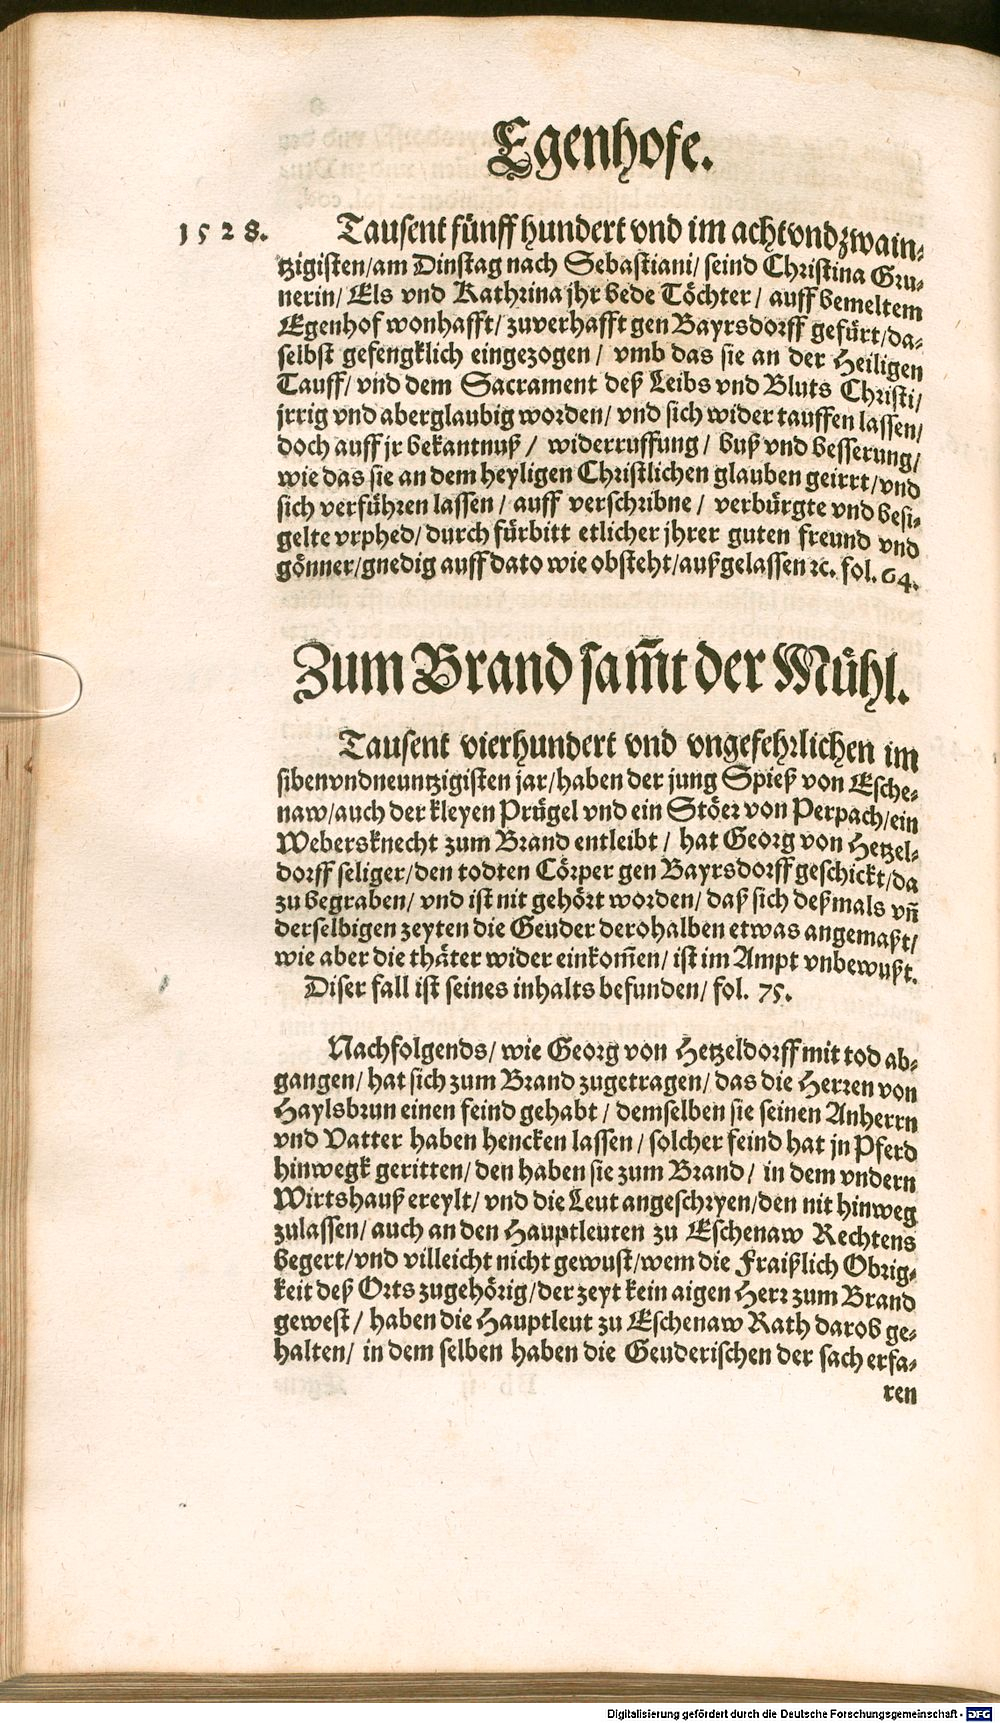 Egenhofe.
1528. Tausent fünff hundert vnd im achtvndzwain-
tzigisten/am Dinstag nach Sebastiani/ seind Christina Gru-
nerin/ Els vnd Kathrina jhr bede Töchter/ auff bemeltem
Egenhof wonhafft/ zuverhafft gen Bayrsdorff gefürt/da-
selbst gefengklich eingezogen/ vmb das sie an der Heiligen
Tauff/ vnd dem Sacrament deß Leibs vnd Bluts Christi/
jrrig vnd aberglaubig worden/ vnd sich wider tauffen lassen/
doch auff jr bekantnuß/ widerruffung/ buß vnd besserung/
wie das sie an dem heyligen Christlichen glauben geirrt/vnd
sich verführen lassen/ auff verschribne/ verbürgte vnd besi-
gelte vrphed/ durch fürbitt etlicher jhrer guten freund vnd
gönner/gnedig auff dato wie obsteht/außgelassen ꝛc. fol. 64.
Zum Brand sam̃t der Mühl.
Tausent vierhundert vnd vngefehrlichen im
sibenvndneuntzigisten jar/haben der jung Spieß von Esche-
naw/auch der kleyen Prügel vnd ein Stöer von Perpach/ein
Webersknecht zum Brand entleibt/ hat Georg von Hetzel-
dorff seliger/den todten Cörper gen Bayrsdorff geschickt/da
zu begraben/ vnd ist nit gehört worden/ daß sich deßmals vñ
derselbigen zeyten die Geuder derohalben etwas angemaßt/
wie aber die thäter wider einkom̃en/ ist im Ampt vnbewußt.
Diser fall ist seines inhalts befunden/ fol. 75.
Nachfolgends/ wie Georg von Hetzeldorff mit tod ab-
gangen/ hat sich zum Brand zugetragen/ das die Herren von
Haylsbrun einen feind gehabt/ demselben sie seinen Anherrn
vnd Vatter haben hencken lassen/ solcher feind hat jn Pferd
hinwegk geritten/ den haben sie zum Brand/ in dem vndern
Wirtshauß ereylt/ vnd die Leut angeschryen/den nit hinweg
zulassen/ auch an den Hauptleuten zu Eschenaw Rechtens
begert/vnd villeicht nicht gewust/wem die Fraißlich Obrig-
keit deß Orts zugehörig/der zeyt kein aigen Herr zum Brand
gewest/ haben die Hauptleut zu Eschenaw Rath darob ge-
halten/ in dem selben haben die Geuderischen der sach erfa-
ren
Digitalisierung gefördert durch die Deutsche Forschungsgemeinschaft - DFG